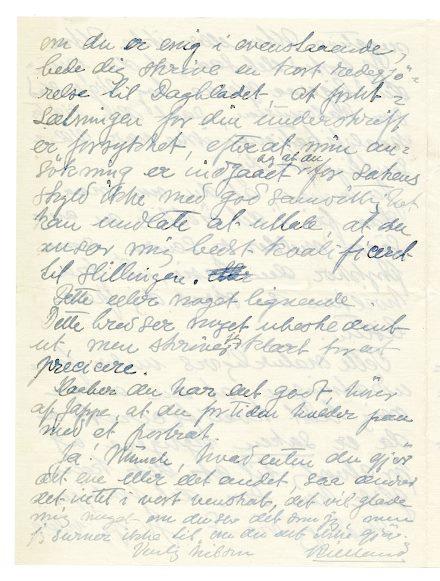 om du er enig i ovenstaaende,
bede dig skrive en kort redegjö-
relse til Dagbladet, at forut-
sætningen for din underskrift
er forrykket, efterat min an-
sökning er indgaaet, og at du for sakens
skyld ikke med god samvittighet
kan undlate at uttale, at du
anser mig bedst kvalificert
til stillingen.
Dette eller noget lignende.
Dette lyder noget ubeskedent
ut men skriv klart for at
precicere.
Haaber du har det godt, hörer
af Jappe, at du for tiden holder paa
med et portræt
Ja. Munch, hvad enten du gjör
det ene eller det andet, saa ændrer
det intet i vort venskab, det vil glæde
mig meget om du ser det som jeg, men
jeg surner ikke til, om du det ikke gjör.
Venlig hilsen
Kielland